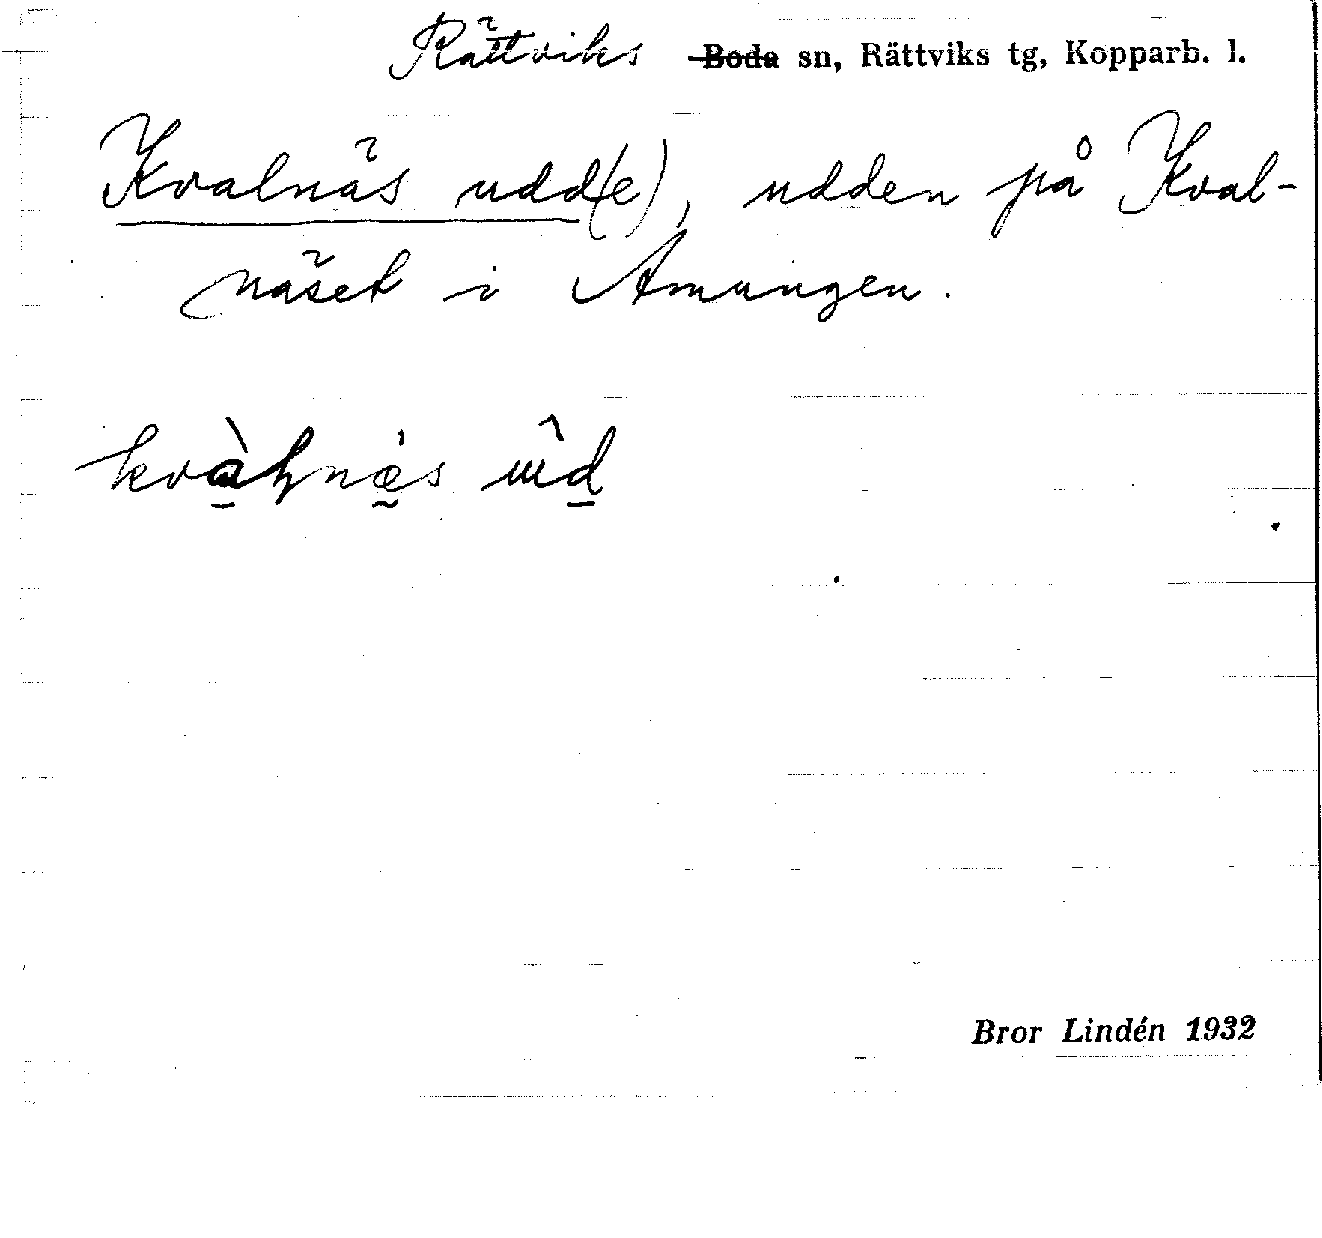 Rättviks Boda sn, Rättviks tg, Kopparb. l.
Kvalnäs udd(e), udden på Kval-
näset i Amungen.
Bror Lindén 1932